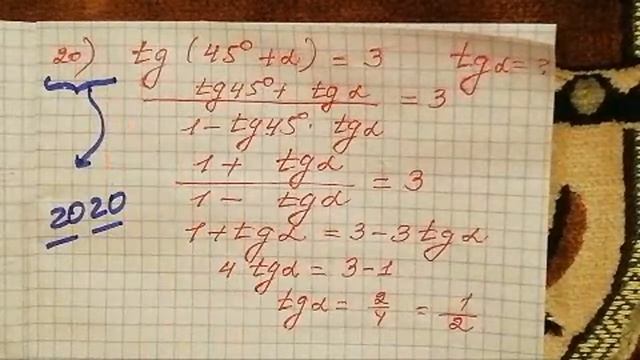 20) tg (45° + α) = 3 tgα = ?
tg45° + tgα / 1 - tg45° · tgα = 3
1 + tgα / 1 - tgα = 3
2020
1 + tgα = 3 - 3 tgα
4 tgα = 3 - 1
tgα = 2/4 = 1/2